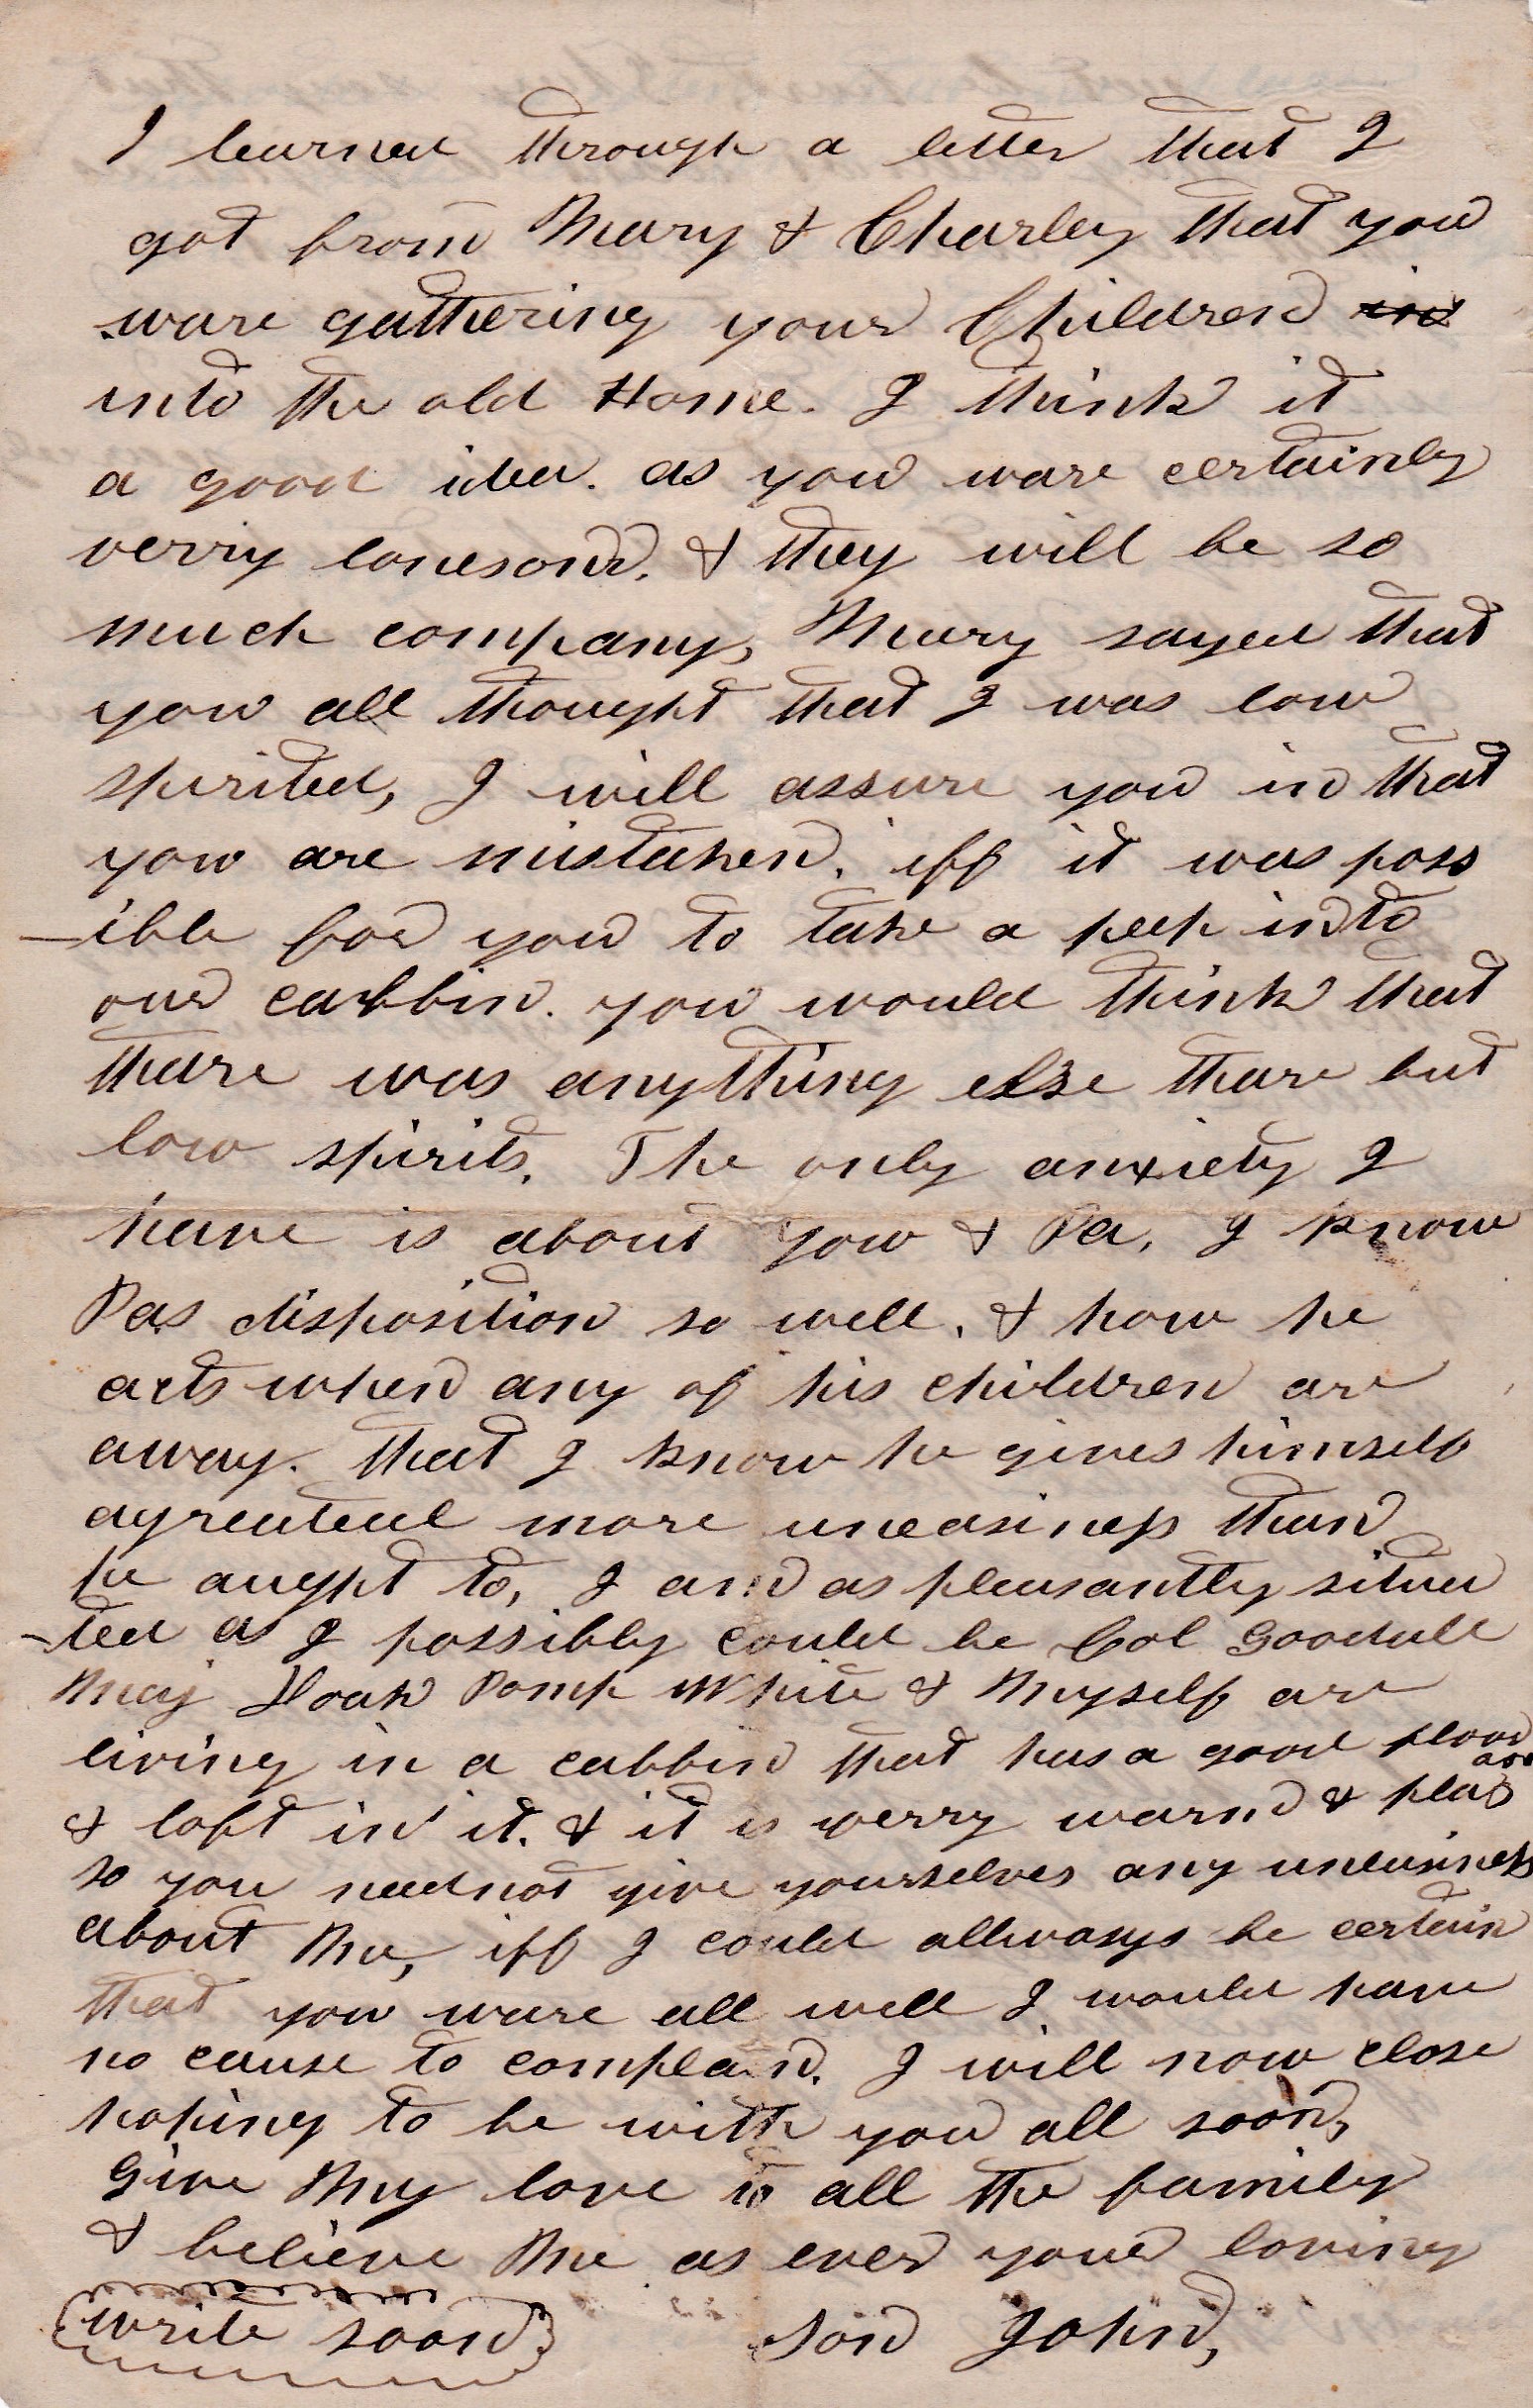 I learned through a letter that I
got from Mary & Charley that you
ware gathering your Children in
into the old Home. I think it
a good idea. as you ware certainly
verry lonesom. & they will be so
much company, Mary sayed that
you all thought that I was low
spirited, I will assure you in that
you are mistaken. iff it was poss
-ible for you to take a peek into
our cabbin. you would think that
thare was anything else thare but
low spirits. The only anxiety I
have is about you & Pa. I know
Pas disposition so well. & how he
acts when any of his children are
away. that I know he gives himself
agreateal more uneasiness than
he aught to, I am as pleasantly situa
-ted as I possibly could be Col Goodall
Maj Pomp White & Myself are
living in a cabbin that has a good floor
& loft in it. & it is verry warm & pleas
ant
so you neednot give yourselves any uneasiness
about Me, iff I could allways be certain
that you ware all well I would have
no cause to complain. I will now close
hoping to be with you all soon,
Give My love to all the family
& believe Me as ever your loving
write soon son John,